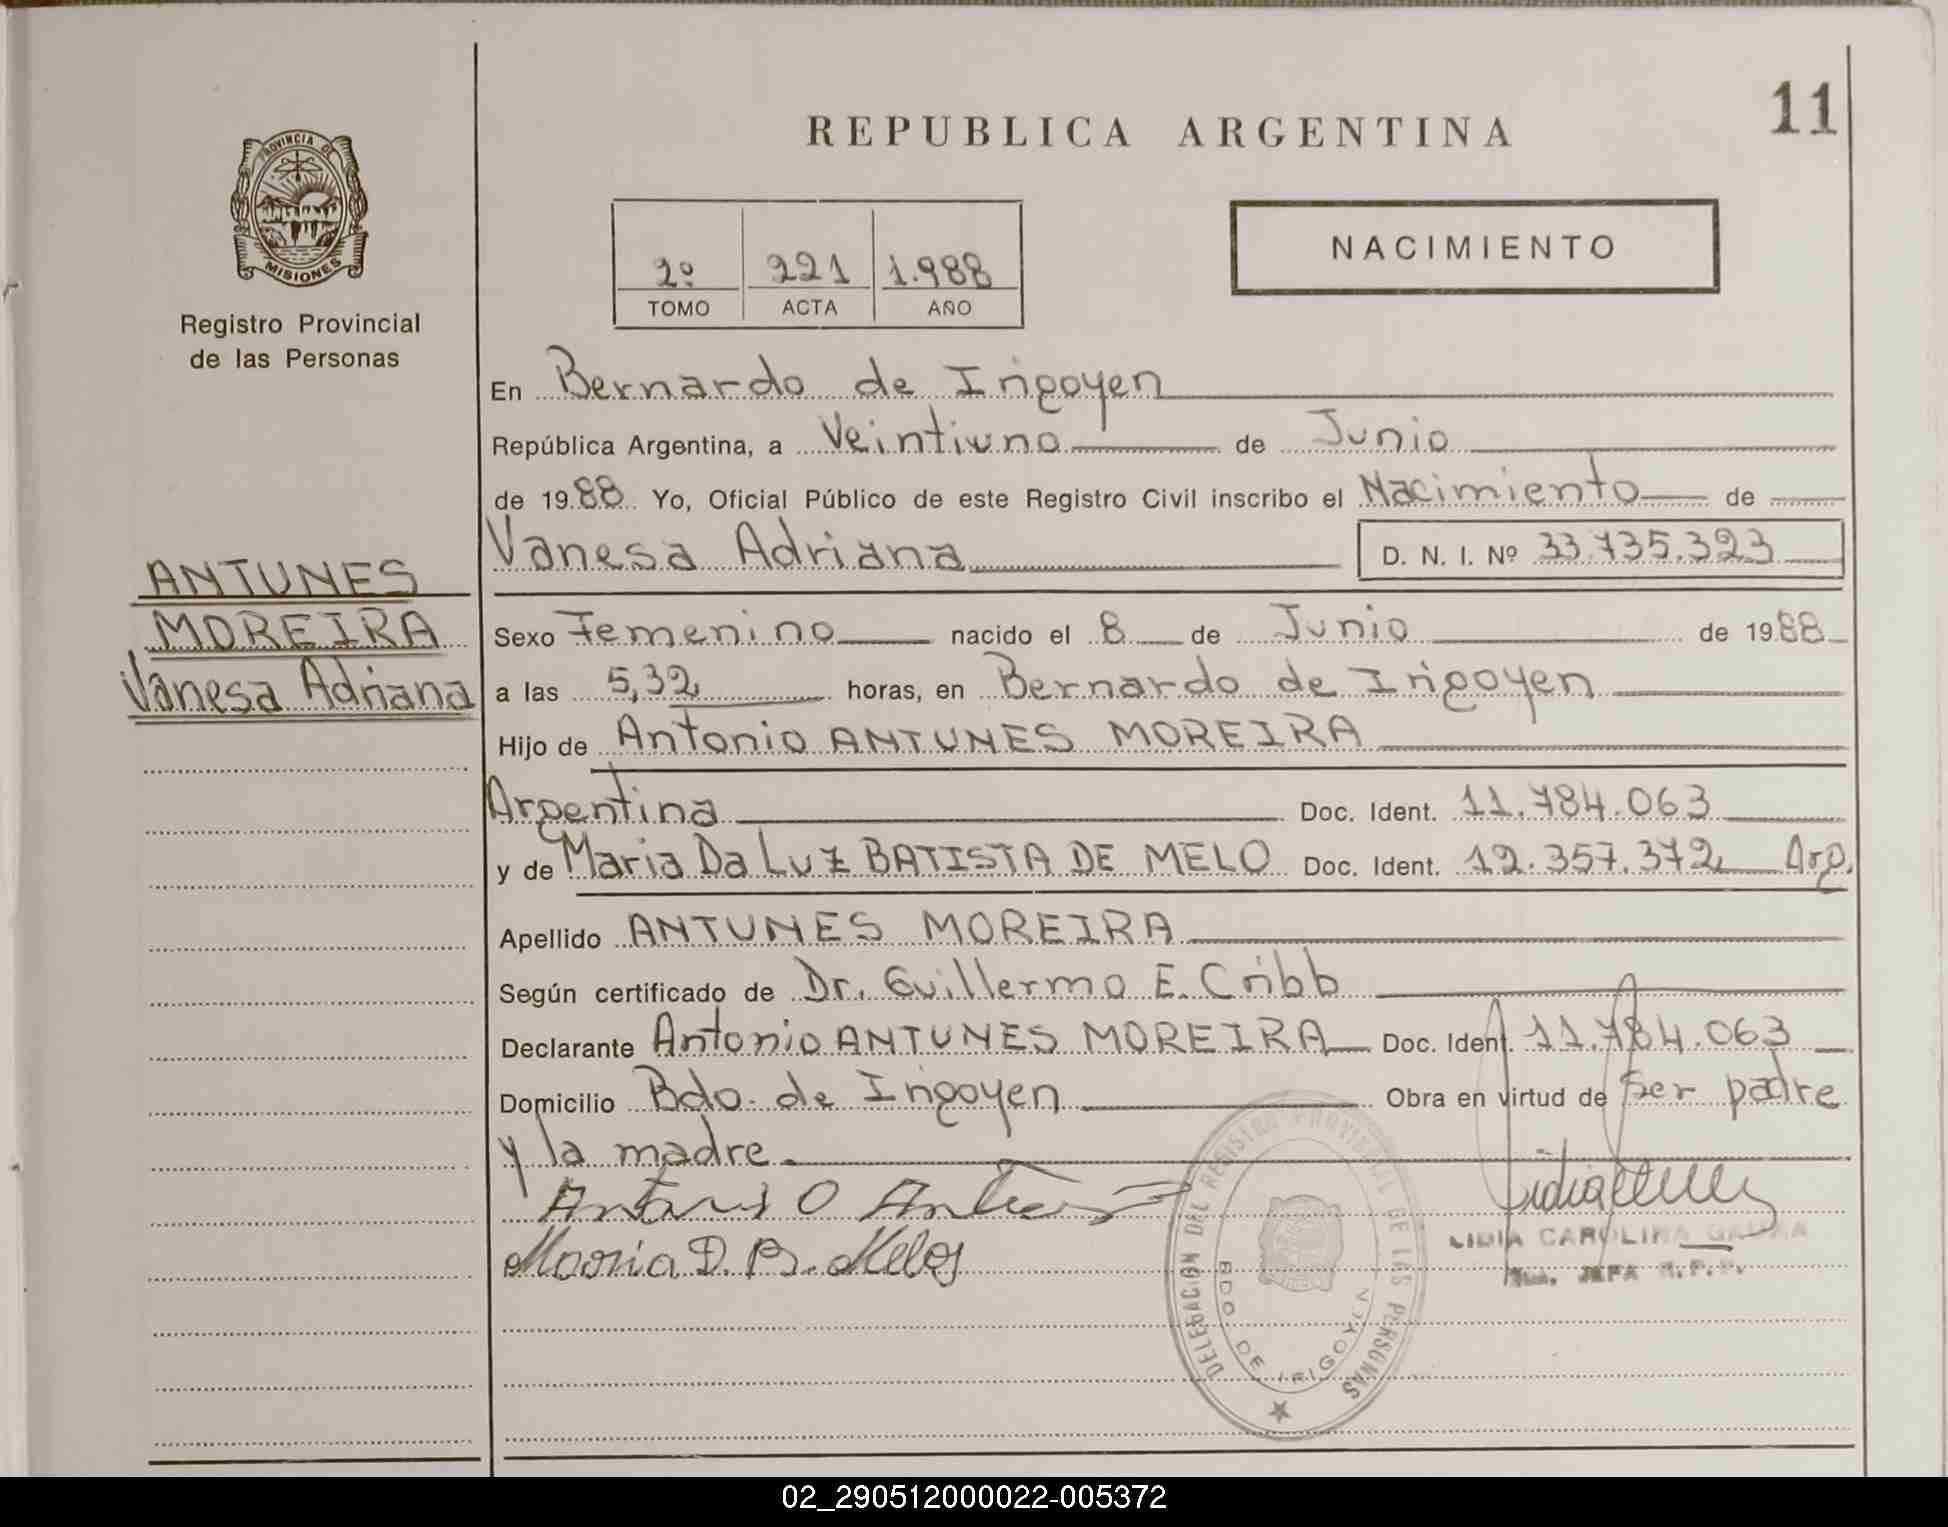 11
REPUBLICA ARGENTINA
PROVINCIA DE
MISIONES
Registro Provincial
de las Personas
2º 221 1.988
TOMO ACTA AÑO
NACIMIENTO
En Bernardo de Irigoyen
República Argentina, a Veintiuno de Junio
de 1988 Yo, Oficial Público de este Registro Civil inscribo el Nacimiento de
Vanesa Adriana D. N. I. Nº 33.735.323
ANTUNES
MOREIRA
Vanesa Adriana
Sexo Femenino nacido el 8 de Junio de 1988
a las 5,32 horas, en Bernardo de Irigoyen
Hijo de Antonio ANTUNES MOREIRA
Argentina Doc. Ident. 11.784.063
y de Maria Da Luz BATISTA DE MELO Doc. Ident. 12.357.372 Arg.
Apellido ANTUNES MOREIRA
Según certificado de Dr. Guillermo E. Cribb
Declarante Antonio ANTUNES MOREIRA Doc. Ident. 11.784.063
Domicilio Bdo. de Irigoyen Obra en virtud de ser padre
y la madre.
Maria D. B. Melo
DELEGACION DEL REGISTRO PROVINCIAL DE LAS PERSONAS
BDO. DE IRIGOYEN
LIDIA CAROLINA
JEFA R.P.P.
02_290512000022-005372